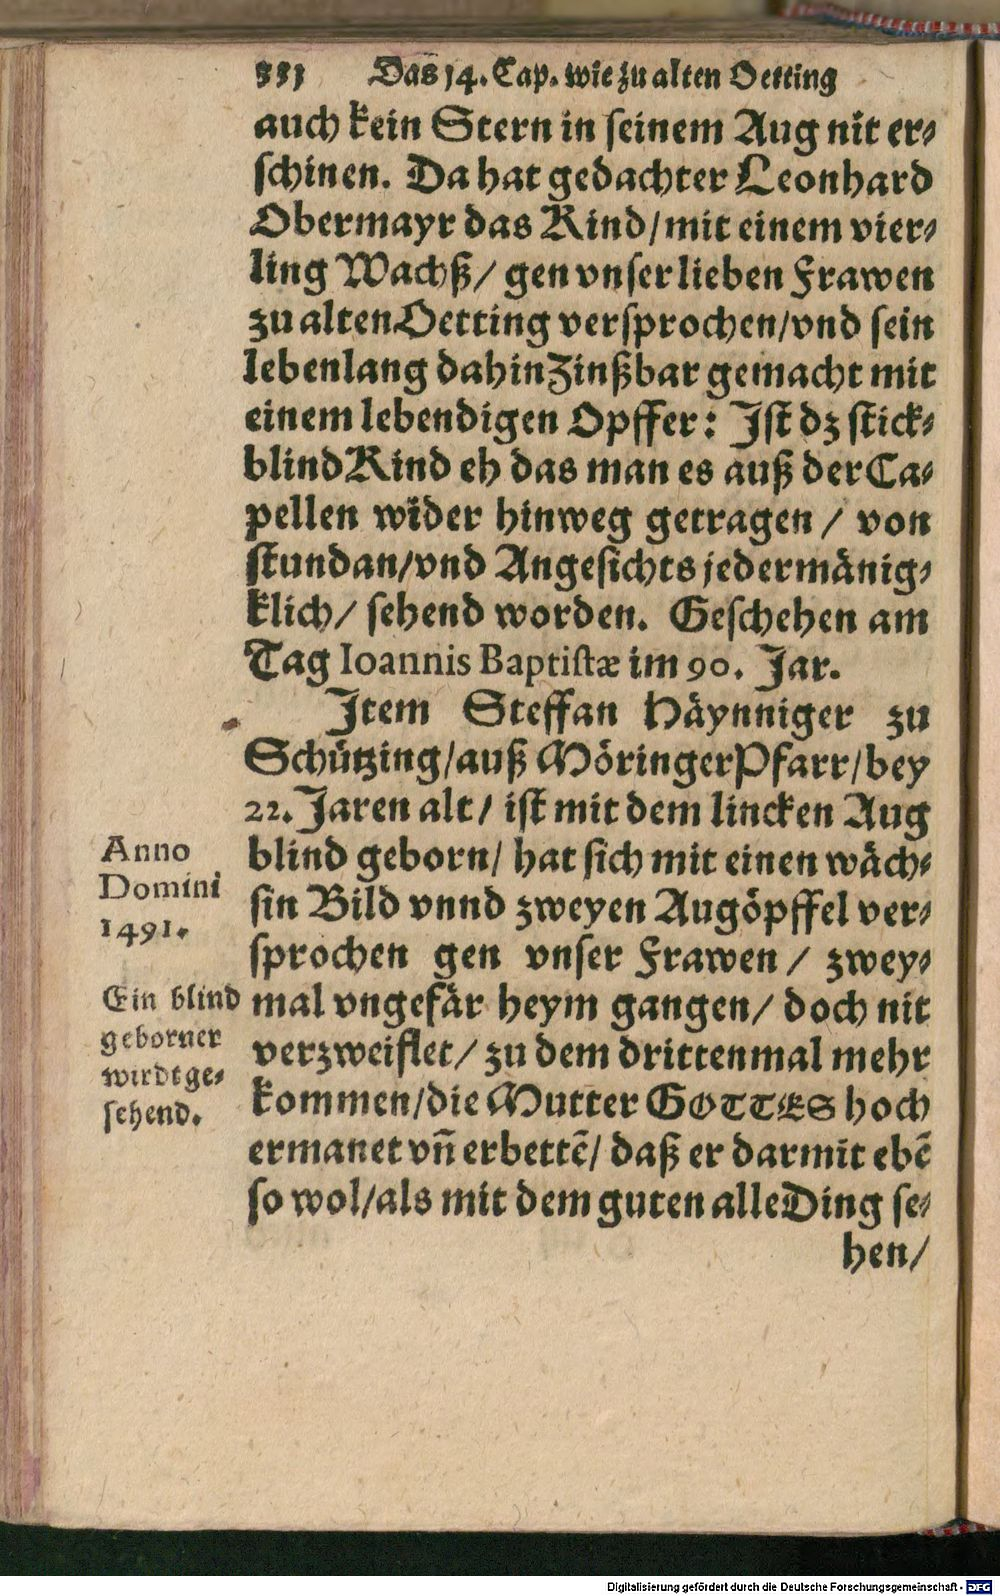 331 Das 14. Cap. wie zu alten Oetting
auch kein Stern in seinem Aug nit er⸗
schinen. Da hat gedachter Leonhard
Obermayr das Kind/ mit einem vier⸗
ling Wachß/ gen vnser lieben Frawen
zu alten Oetting versprochen/ vnd sein
lebenlang dahin Zinßbar gemacht mit
einem lebendigen Opffer: Ist dz stick⸗
blind Kind eh das man es auß der Ca⸗
pellen wider hinweg getragen / von
stundan/ vnd Angesichts jedermänig⸗
klich/ sehend worden. Geschehen am
Tag Ioannis Baptistæ im 90. Jar.
Item Steffan Häynniger zu
Schützing/ auß Möringer Pfarr/ bey
22. Jaren alt/ ist mit dem lincken Aug
blind geborn/ hat sich mit einen wäch⸗
sin Bild vnnd zweyen Augöpffel ver⸗
sprochen gen vnser Frawen / zwey⸗
mal vngefär heym gangen/ doch nit
verzweiflet/ zu dem drittenmal mehr
kommen/ die Mutter GOTTES hoch
ermanet vñ erbettẽ/ daß er darmit ebẽ
so wol/ als mit dem guten alle Ding se⸗
hen/
Anno
Domini
1491.
Ein blind
geborner
wirdt ge⸗
sehend.
Digitalisierung gefördert durch die Deutsche Forschungsgemeinschaft - DFG